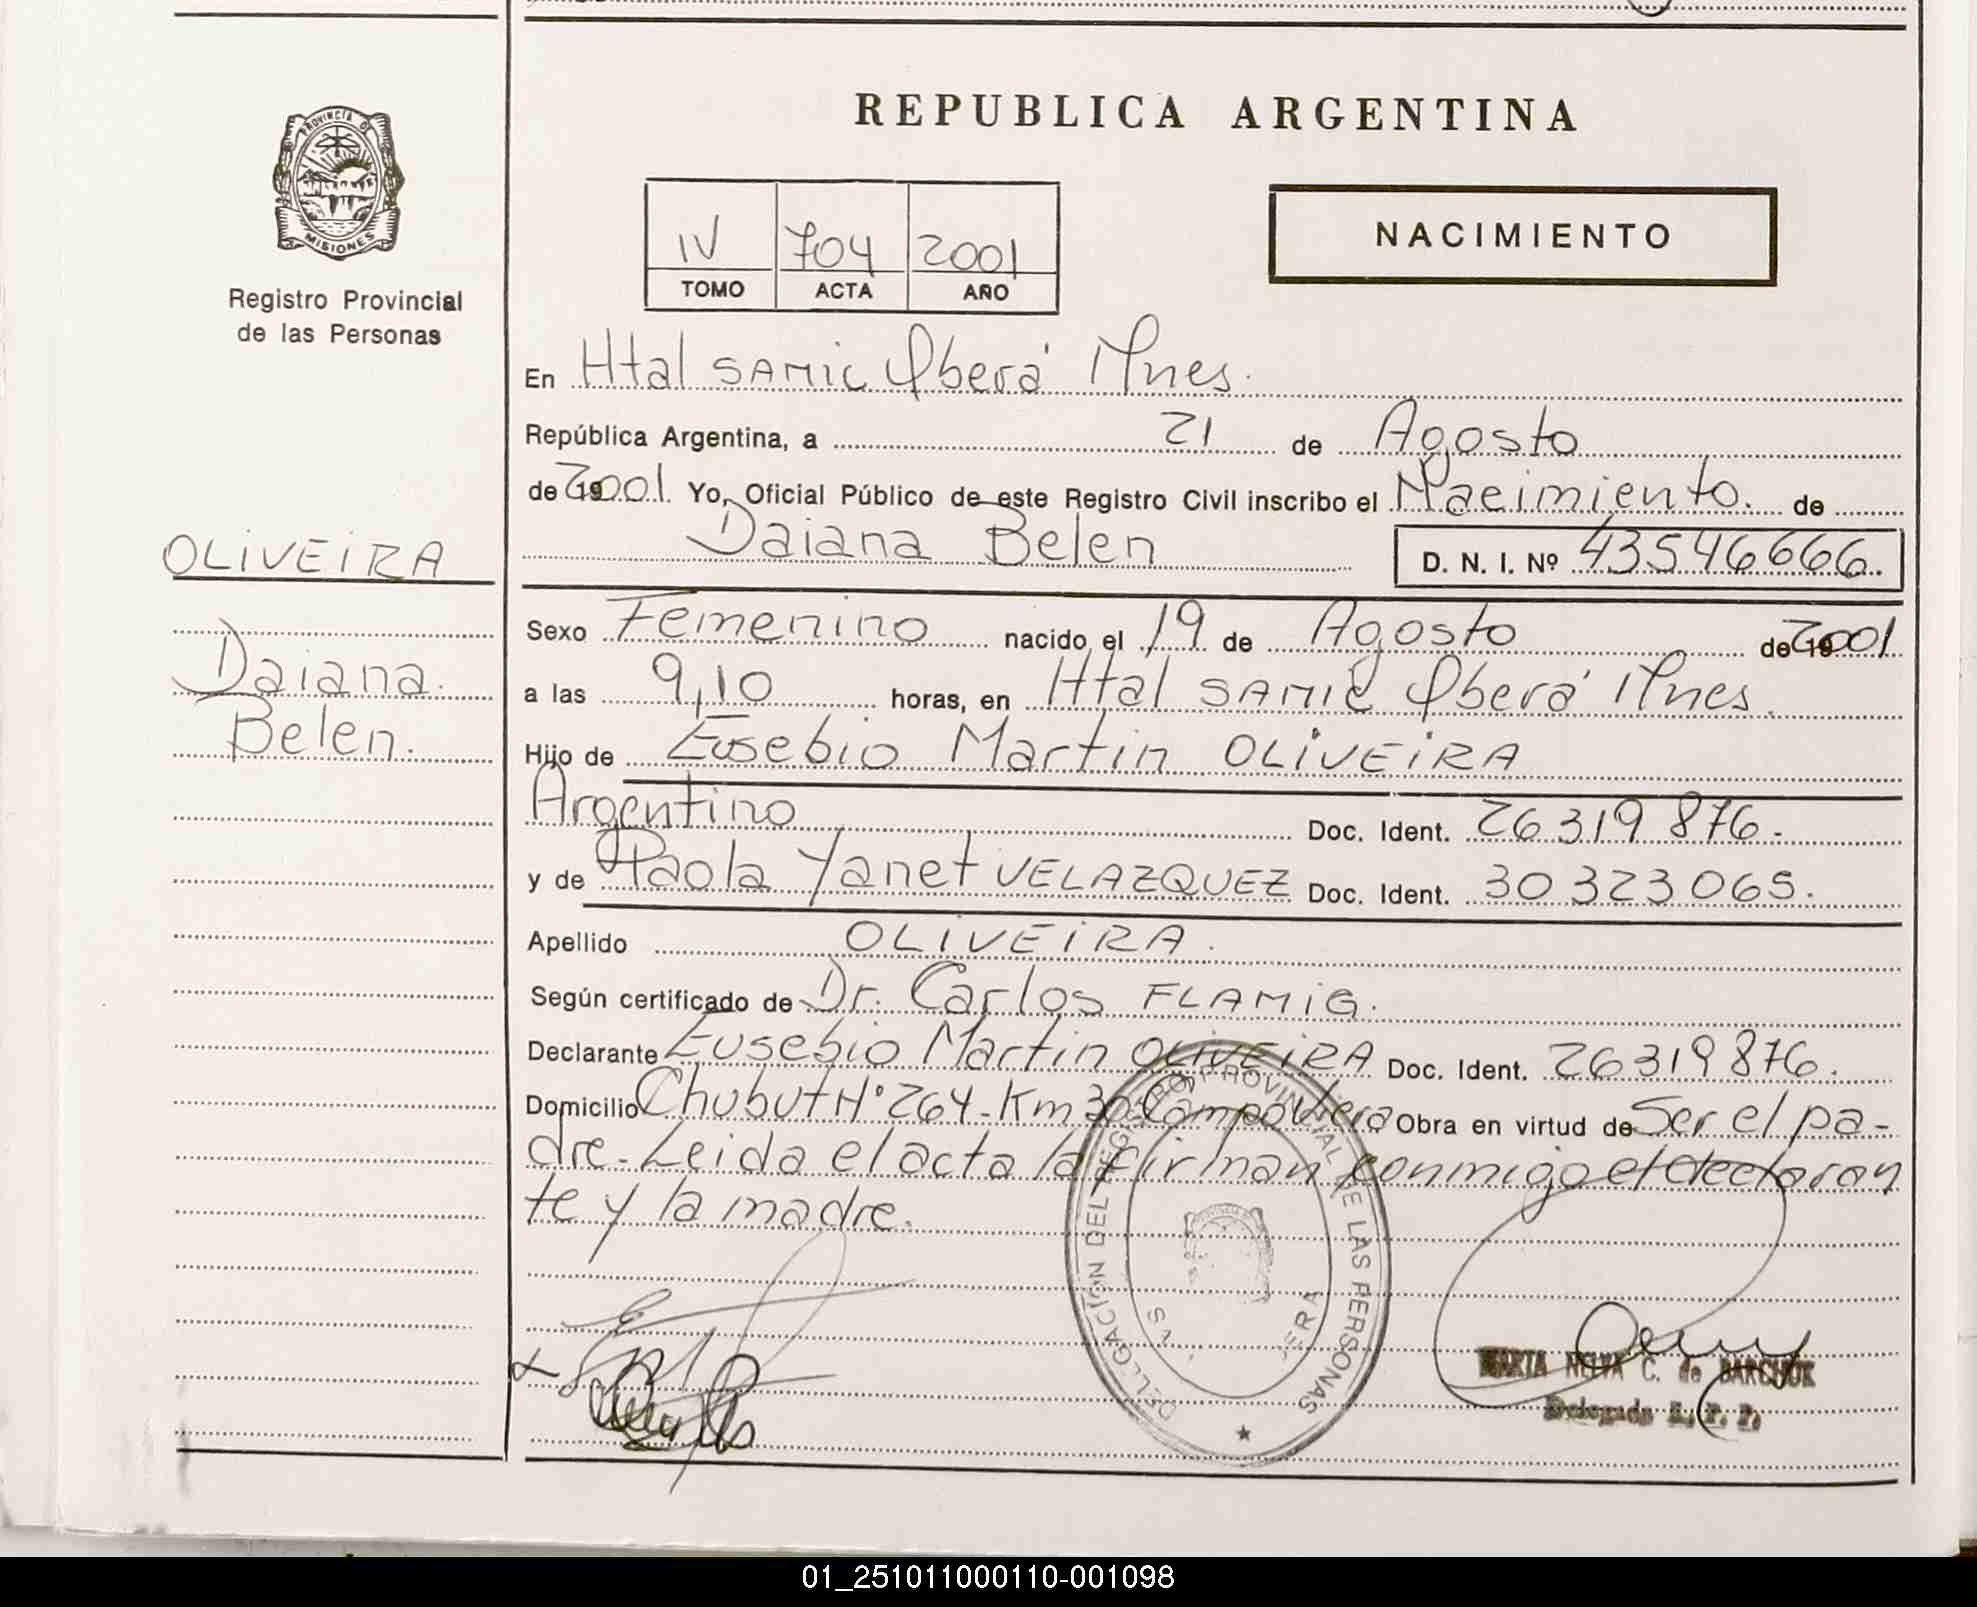 PROVINCIA DE
MISIONES
Registro Provincial
de las Personas
OLIVEIRA
Daiana
Belen.
REPUBLICA ARGENTINA
IV 704 2001
TOMO ACTA AÑO
NACIMIENTO
En Htal SAMIC Oberá Mnes.
República Argentina, a 21 de Agosto
de 2001. Yo, Oficial Público de este Registro Civil inscribo el Nacimiento. de
Daiana Belen D. N. I. Nº 43546666.
Sexo Femenino nacido el 19 de Agosto de 2001
a las 9,10 horas, en Htal SAMIC Oberá Mnes.
Hijo de Eusebio Martin OLIVEIRA
Argentino Doc. Ident. 26319876.
y de Paola Yanet VELAZQUEZ Doc. Ident. 30323065.
Apellido OLIVEIRA.
Según certificado de Dr. Carlos FLAMIG.
Declarante Eusebio Martin OLIVEIRA Doc. Ident. 26319876.
Domicilio Chubut Nº 264 - Km 30 Campo Viera Obra en virtud de Ser el pa-
dre. Leida el acta la firman conmigo el declaran
te y la madre.
DELEGACIÓN DEL REGISTRO PROVINCIAL DE LAS PERSONAS
MARTA NELVA C. de BARCHUK
Delegada R. P. P.
01_251011000110-001098